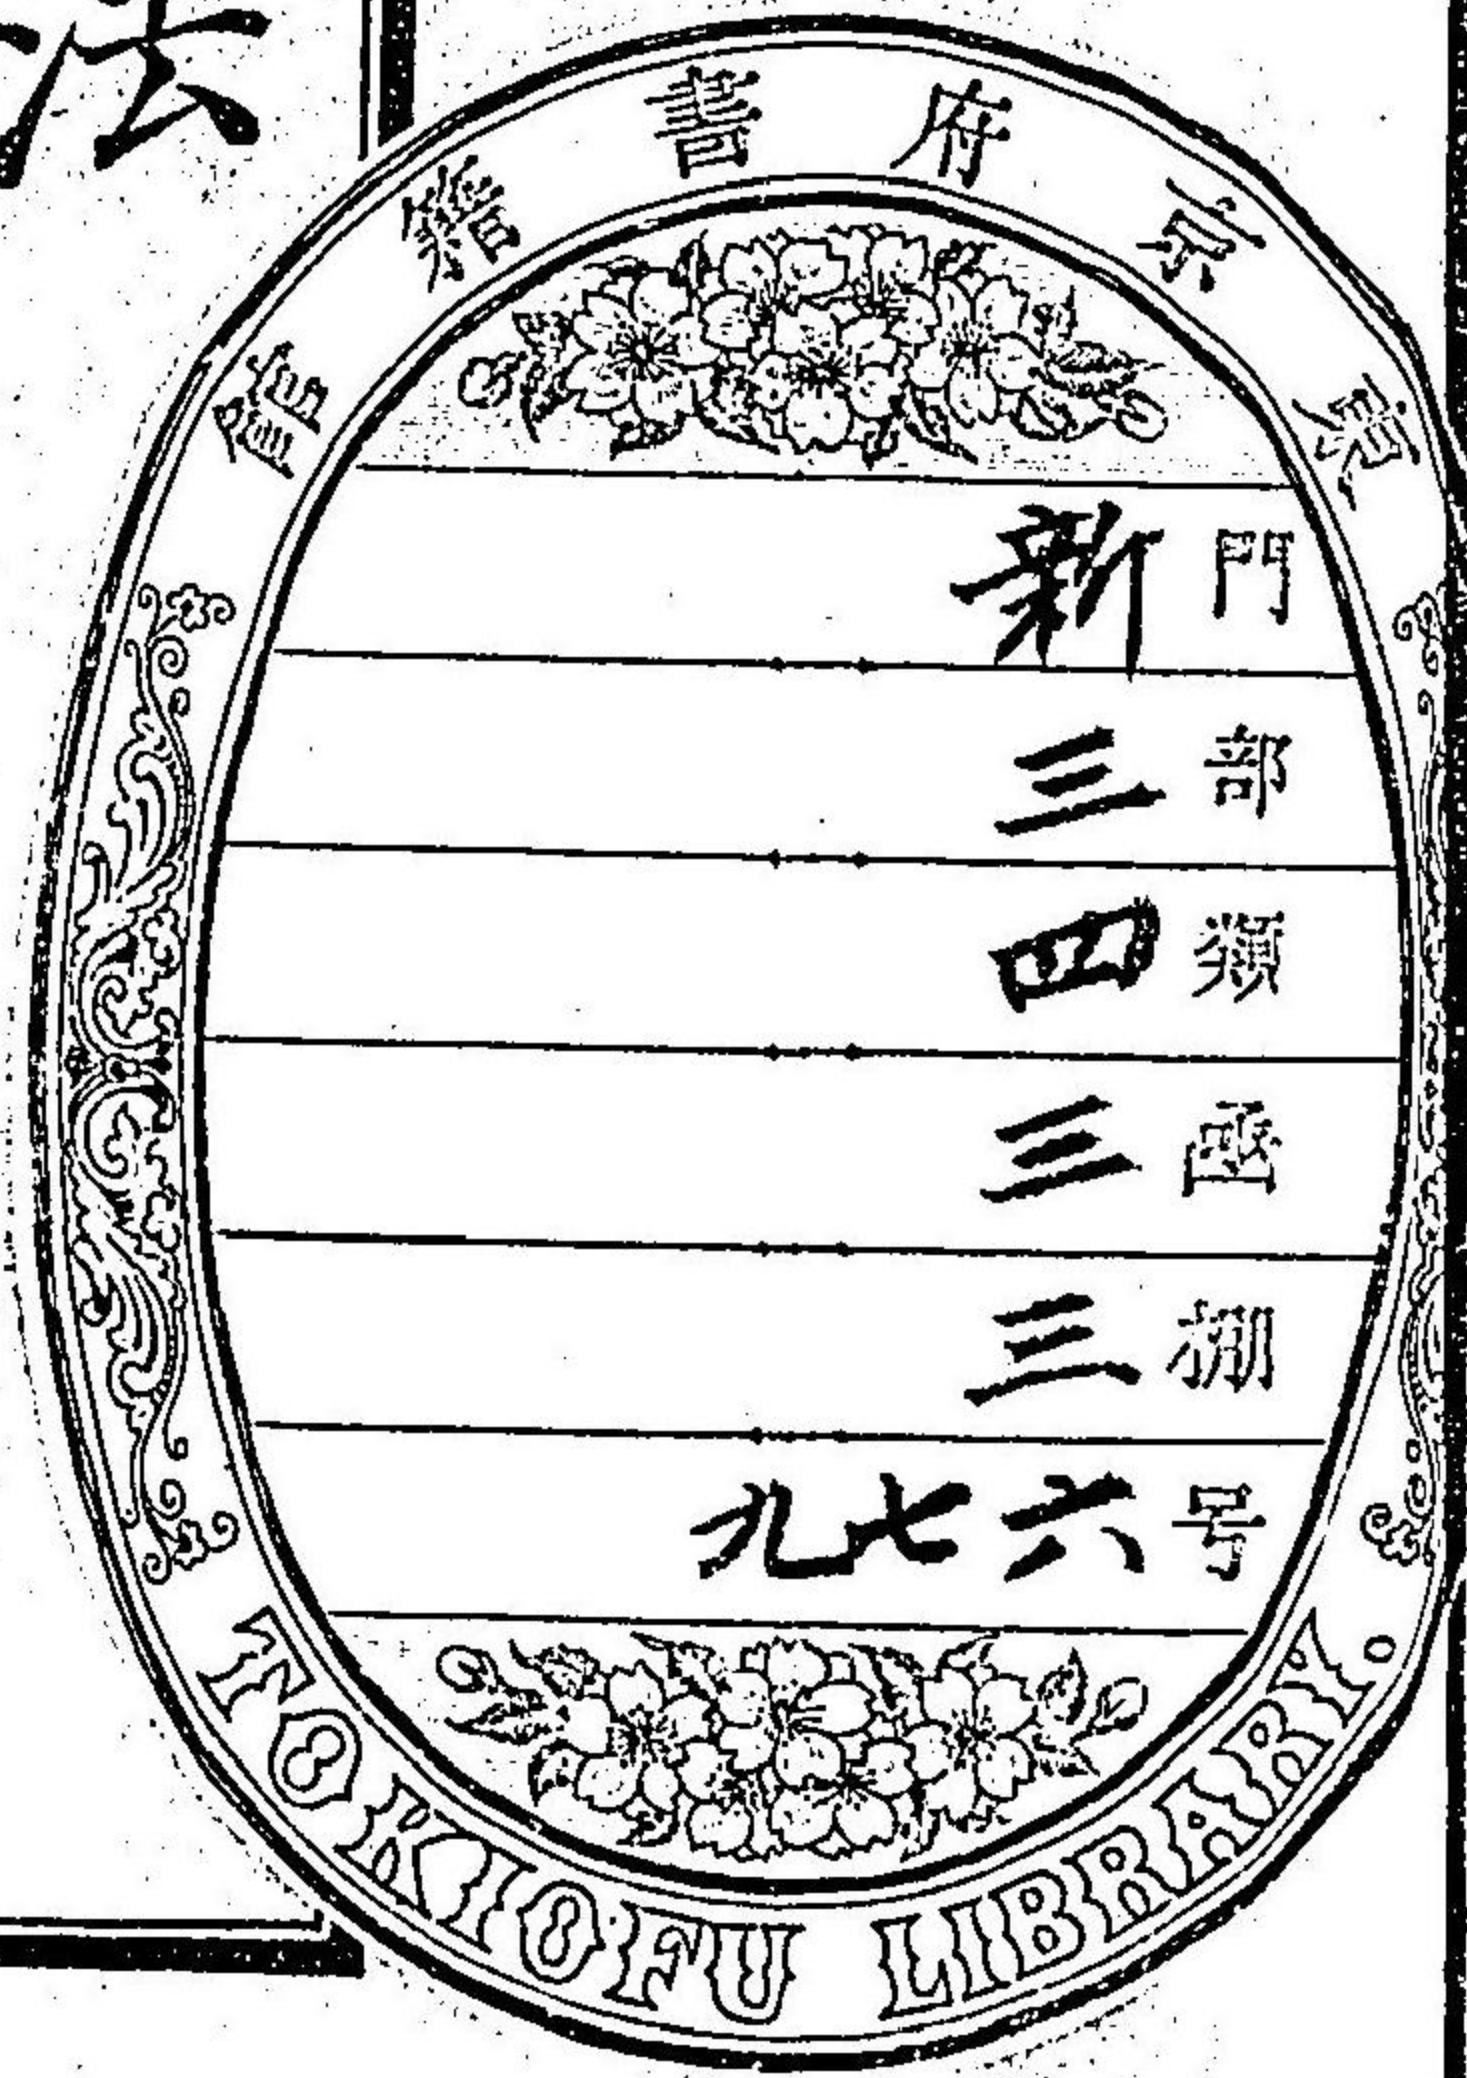 法
東京府書籍館
門 新
部 三
類 四
凾 三
棚 三
号 六七九
TOKIOFU LIBRARY.